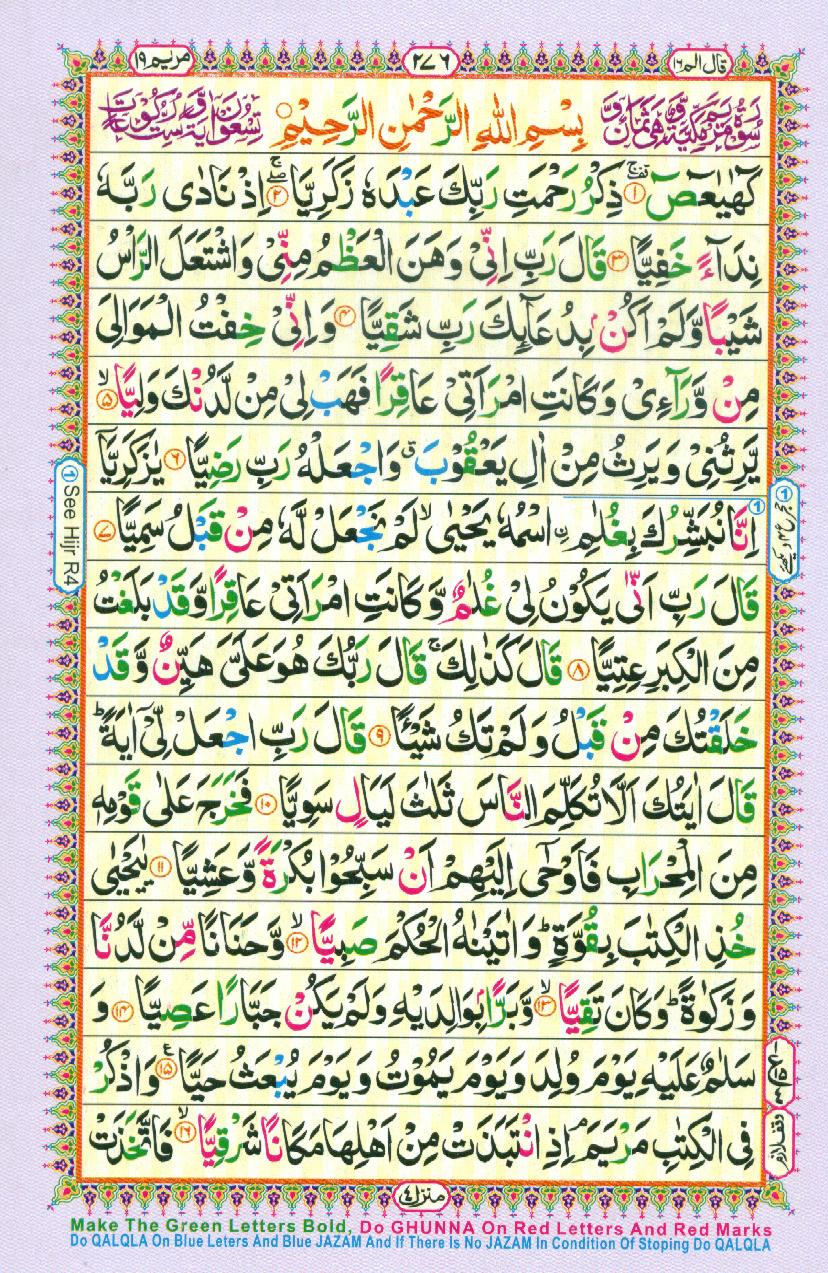 قال الم ١٦
٢٧٦
مريم ١٩
سورة مريم مكية وهي ثمان وتسعون اية وست ركوعات
بِسْمِ اللهِ الرَّحْمٰنِ الرَّحِيْمِ
كٓهٰيٰعٓصٓ ۚ ۱ ذِكْرُ رَحْمَتِ رَبِّكَ عَبْدَهٗ زَكَرِيَّا ۚ ۲ اِذْ نَادٰى رَبَّهٗ
نِدَآءً خَفِيًّا ۳ قَالَ رَبِّ اِنِّیْ وَهَنَ الْعَظْمُ مِنِّیْ وَاشْتَعَلَ الرَّاْسُ
شَيْبًا وَّلَمْ اَكُنْۢ بِدُعَآئِكَ رَبِّ شَقِيًّا ۴ وَاِنِّیْ خِفْتُ الْمَوَالِیَ
مِنْ وَّرَآءِیْ وَكَانَتِ امْرَاَتِیْ عَاقِرًا فَهَبْ لِیْ مِنْ لَّدُنْكَ وَلِيًّا ۙ ۵
يَّرِثُنِیْ وَيَرِثُ مِنْ اٰلِ يَعْقُوْبَ ۖ ق وَاجْعَلْهُ رَبِّ رَضِيًّا ۶ يٰزَكَرِيَّآ
اِنَّا نُبَشِّرُكَ بِغُلٰمِ ۣاسْمُهٗ يَحْيٰى ۙ لَمْ نَجْعَلْ لَّهٗ مِنْ قَبْلُ سَمِيًّا ۷
قَالَ رَبِّ اَنّٰى يَكُوْنُ لِیْ غُلٰمٌ وَّكَانَتِ امْرَاَتِیْ عَاقِرًا وَّقَدْ بَلَغْتُ
مِنَ الْكِبَرِ عِتِيًّا ۸ قَالَ كَذٰلِكَ ۚ قَالَ رَبُّكَ هُوَ عَلَیَّ هَيِّنٌ وَّقَدْ
خَلَقْتُكَ مِنْ قَبْلُ وَلَمْ تَكُ شَيْـًٔا ۹ قَالَ رَبِّ اجْعَلْ لِّیْٓ اٰيَةً ؕ
قَالَ اٰيَتُكَ اَلَّا تُكَلِّمَ النَّاسَ ثَلٰثَ لَيَالٍ سَوِيًّا ۱۰ فَخَرَجَ عَلٰى قَوْمِهٖ
مِنَ الْمِحْرَابِ فَاَوْحٰٓى اِلَيْهِمْ اَنْ سَبِّحُوْا بُكْرَةً وَّعَشِيًّا ۱۱ يٰيَحْيٰى
خُذِ الْكِتٰبَ بِقُوَّةٍ ؕ وَاٰتَيْنٰهُ الْحُكْمَ صَبِيًّا ۙ ۱۲ وَّحَنَانًا مِّنْ لَّدُنَّا
وَزَكٰوةً ؕ وَكَانَ تَقِيًّا ۙ ۱۳ وَّبَرًّۢا بِوَالِدَيْهِ وَلَمْ يَكُنْ جَبَّارًا عَصِيًّا ۱۴ وَ
سَلٰمٌ عَلَيْهِ يَوْمَ وُلِدَ وَيَوْمَ يَمُوْتُ وَيَوْمَ يُبْعَثُ حَيًّا ۱۵ ع وَاذْكُرْ
فِی الْكِتٰبِ مَرْيَمَ ۘ اِذِ انْتَبَذَتْ مِنْ اَهْلِهَا مَكَانًا شَرْقِيًّا ۙ ۱۶ فَاتَّخَذَتْ
1 See Hijr R4
وقف لازم
منزل ۴
Make The Green Letters Bold, Do GHUNNA On Red Letters And Red Marks
Do QALQLA On Blue Leters And Blue JAZAM And If There Is No JAZAM In Condition Of Stoping Do QALQLA